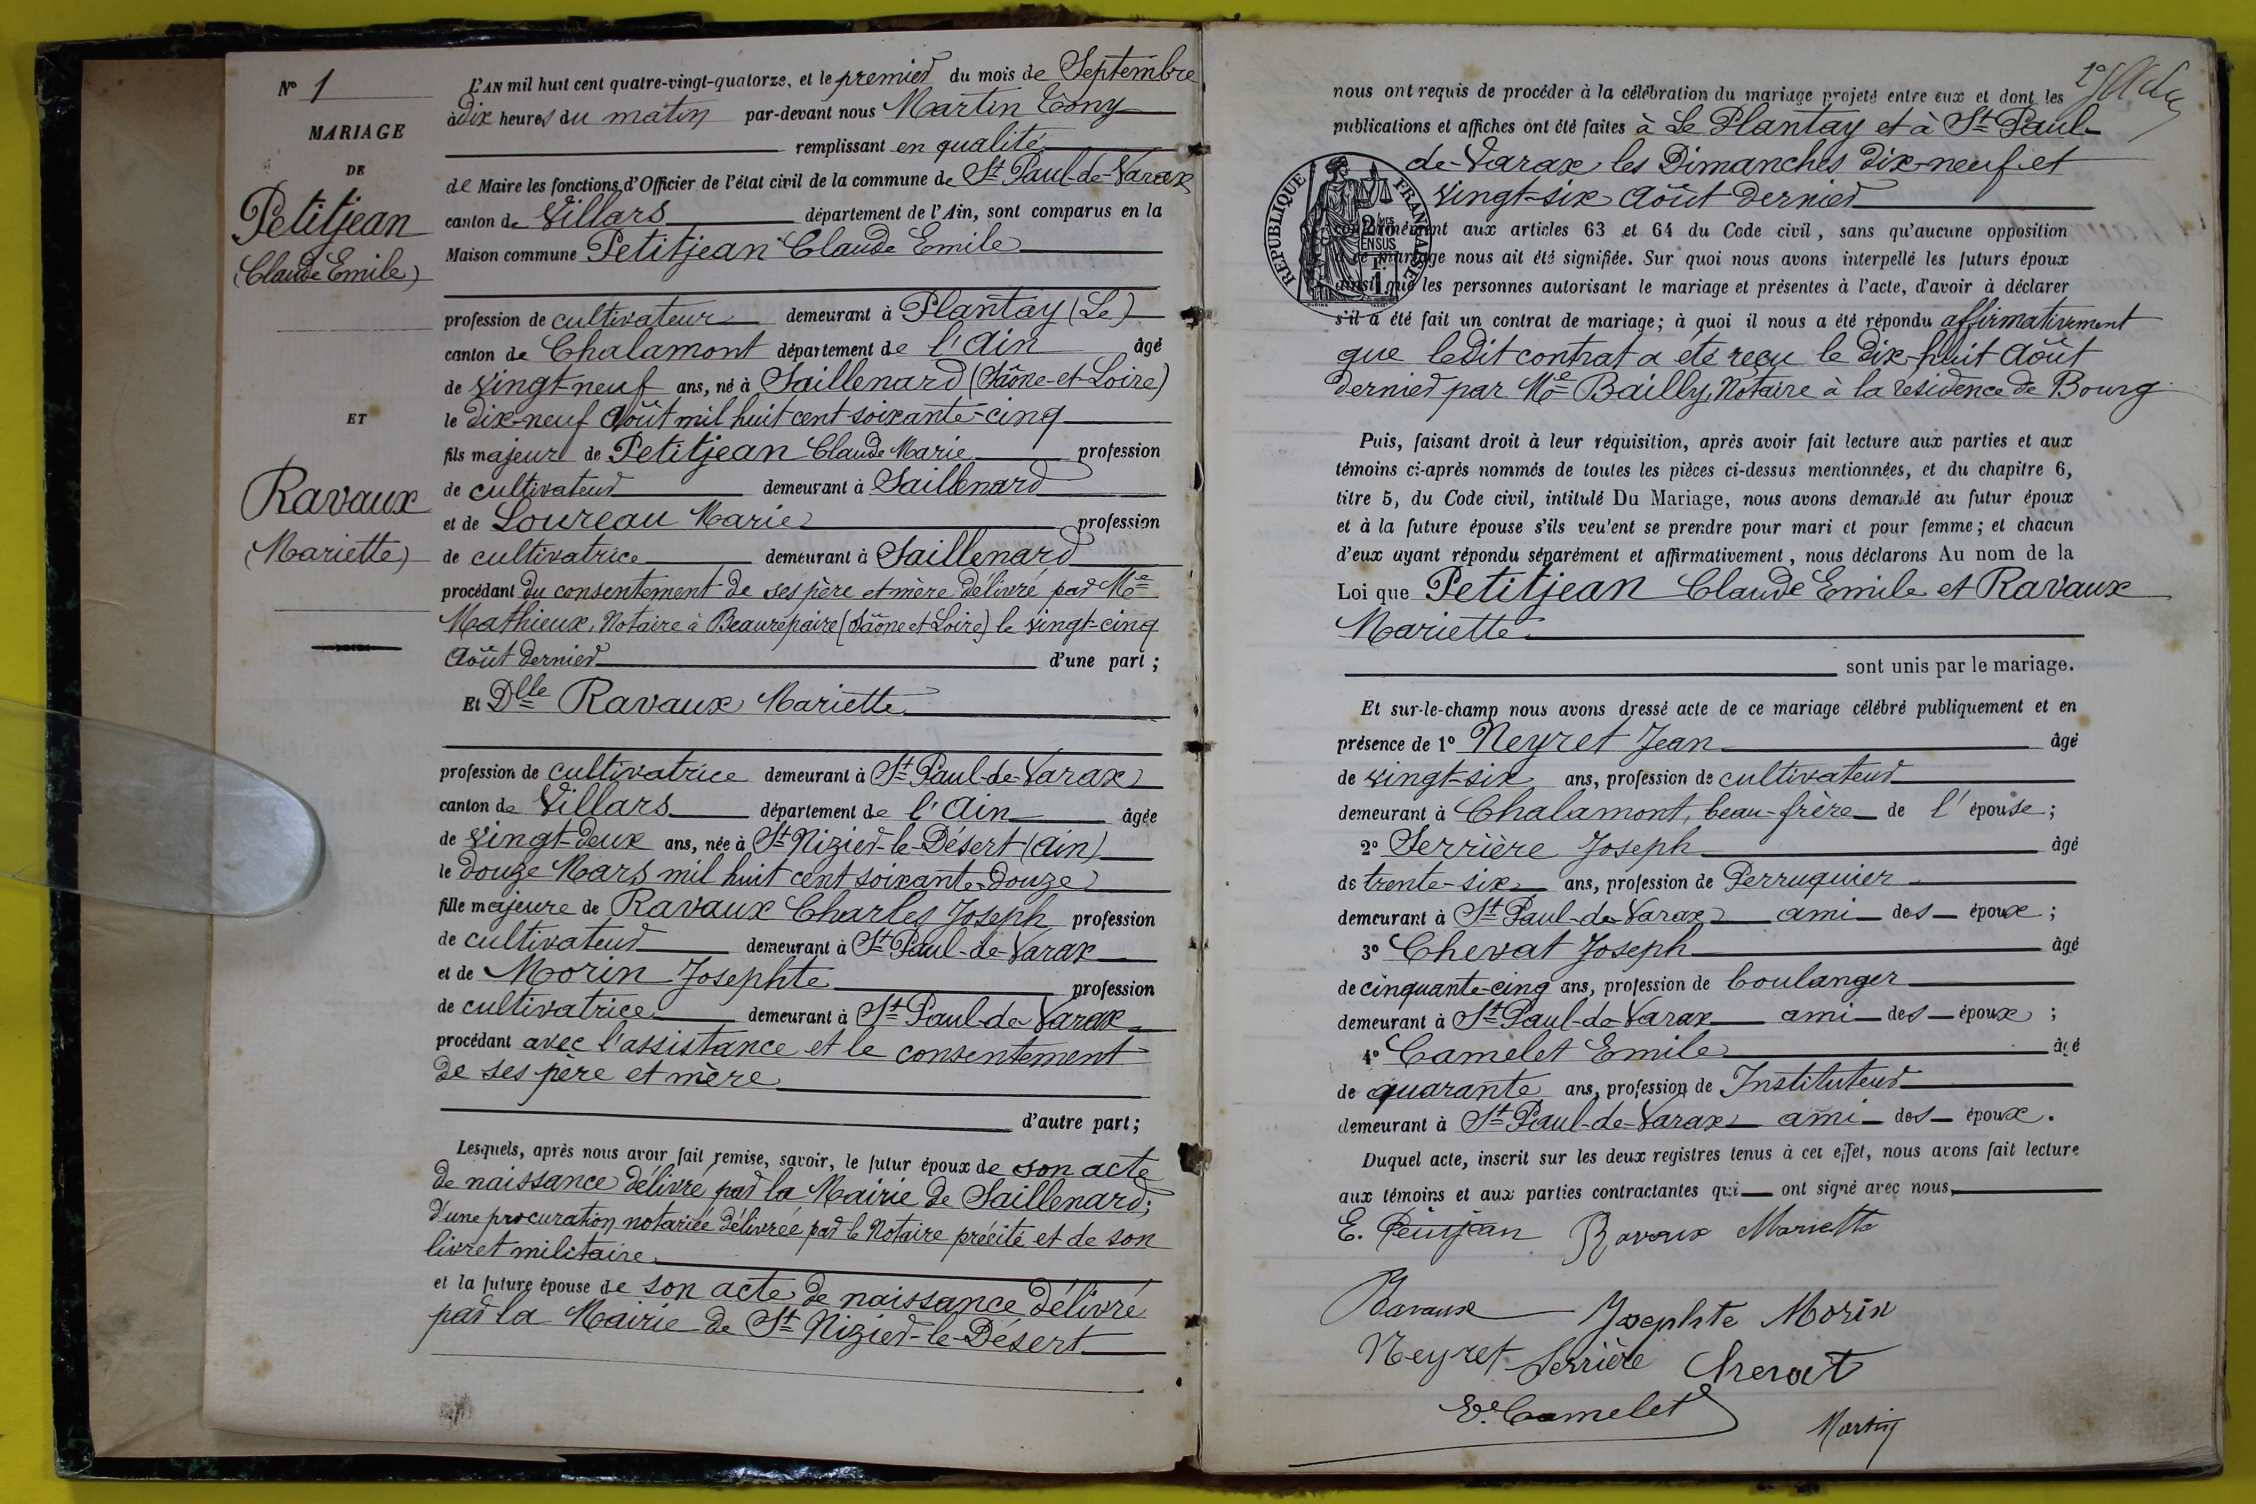 N° 1
MARIAGE
DE
Petitjean
(Claude Emile)
ET
Ravaux
(Mariette)
L'AN mil huit cent quatre-vingt-quatorze, et le premier du mois de Septembre
à dix heures du matin par-devant nous Martin Tony
remplissant en qualité
de Maire les fonctions d'Officier de l'état civil de la commune de St Paul-de-Varax
canton de Villars département de l'Ain, sont comparus en la
Maison commune Petitjean Claude Emile
profession de cultivateur demeurant à Plantay (Le)
canton de Chalamont département de l'Ain âgé
de vingt-neuf ans, né à Saillenard (Saône-et-Loire)
le dix-neuf Août mil huit cent soixante-cinq
fils majeur de Petitjean Claude Marie profession
de cultivateur demeurant à Saillenard
et de Loureau Marie profession
de cultivatrice demeurant à Saillenard
procédant du consentement de ses père et mère délivré par Me
Mathieux, Notaire à Beaurepaire (Saône et Loire) le vingt-cinq
Août dernier d'une part ;
Et Dlle Ravaux Mariette
profession de cultivatrice demeurant à St Paul-de-Varax
canton de Villars département de l'Ain âgée
de vingt-deux ans, née à St Nizier-le-Désert (Ain)
le douze Mars mil huit cent soixante-douze
fille majeure de Ravaux Charles Joseph profession
de cultivateur demeurant à St Paul-de-Varax
et de Morin Josephte profession
de cultivatrice demeurant à St Paul-de-Varax
procédant avec l'assistance et le consentement
de ses père et mère
d'autre part ;
Lesquels, après nous avoir fait remise, savoir, le futur époux de son acte
de naissance délivré par la Mairie de Saillenard ;
d'une procuration notariée délivrée par le Notaire précité et de son
livret militaire
et la future épouse de son acte de naissance délivré
par la Mairie de St Nizier-le-Désert
nous ont requis de procéder à la célébration du mariage projeté entre eux et dont les
publications et affiches ont été faites à Le Plantay et à St Paul
de-Varax les Dimanches dix-neuf et
vingt-six Août dernier
RÉPUBLIQUE FRANÇAISE
conformément aux articles 63 et 64 du Code civil, sans qu'aucune opposition
à ce mariage nous ait été signifiée. Sur quoi nous avons interpellé les futurs époux
ainsi que les personnes autorisant le mariage et présentes à l'acte, d'avoir à déclarer
s'il a été fait un contrat de mariage ; à quoi il nous a été répondu affirmativement
que ledit contrat a été reçu le dix-huit Août
dernier par Me Bailly, Notaire à la résidence de Bourg
Puis, faisant droit à leur réquisition, après avoir fait lecture aux parties et aux
témoins ci-après nommés de toutes les pièces ci-dessus mentionnées, et du chapitre 6,
titre 5, du Code civil, intitulé Du Mariage, nous avons demandé au futur époux
et à la future épouse s'ils veulent se prendre pour mari et pour femme ; et chacun
d'eux ayant répondu séparément et affirmativement, nous déclarons Au nom de la
Loi que Petitjean Claude Emile et Ravaux
Mariette
sont unis par le mariage.
Et sur-le-champ nous avons dressé acte de ce mariage célébré publiquement et en
présence de 1° Neyret Jean âgé
de vingt-six ans, profession de cultivateur
demeurant à Chalamont, beau-frère de l'épouse ;
2° Serrière Joseph âgé
de trente-six ans, profession de Perruquier
demeurant à St Paul-de-Varax ami des époux ;
3° Chevat Joseph âgé
de cinquante-cinq ans, profession de boulanger
demeurant à St Paul-de-Varax ami des époux ;
4° Camelet Emile âgé
de quarante ans, profession de Instituteur
demeurant à St Paul-de-Varax ami des époux.
Duquel acte, inscrit sur les deux registres tenus à cet effet, nous avons fait lecture
aux témoins et aux parties contractantes qui ont signé avec nous,
E. Petitjean Ravaux Mariette
Ravaux Josephte Morin
Neyret Serrière Chevat
E. Camelet
Martin